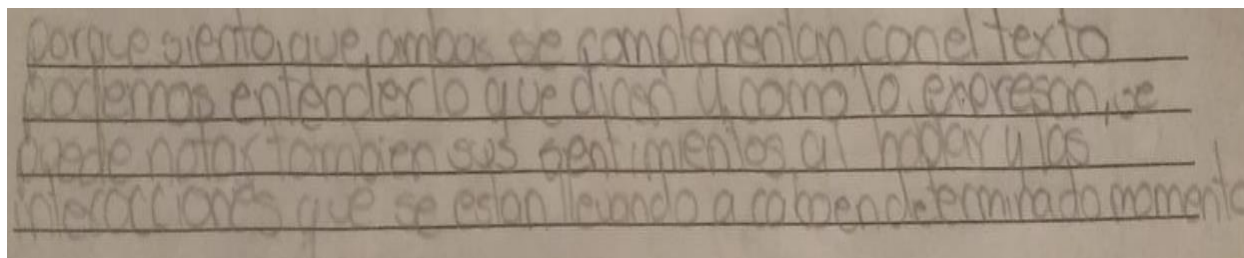 porque siento, que, ambas se complementan, con el texto
podemos entender lo que dicen y como lo expresan, se
puede notar tambien sus sentimientos al hablar y las
interacciones que se estan llevando a cabo en determinado momento